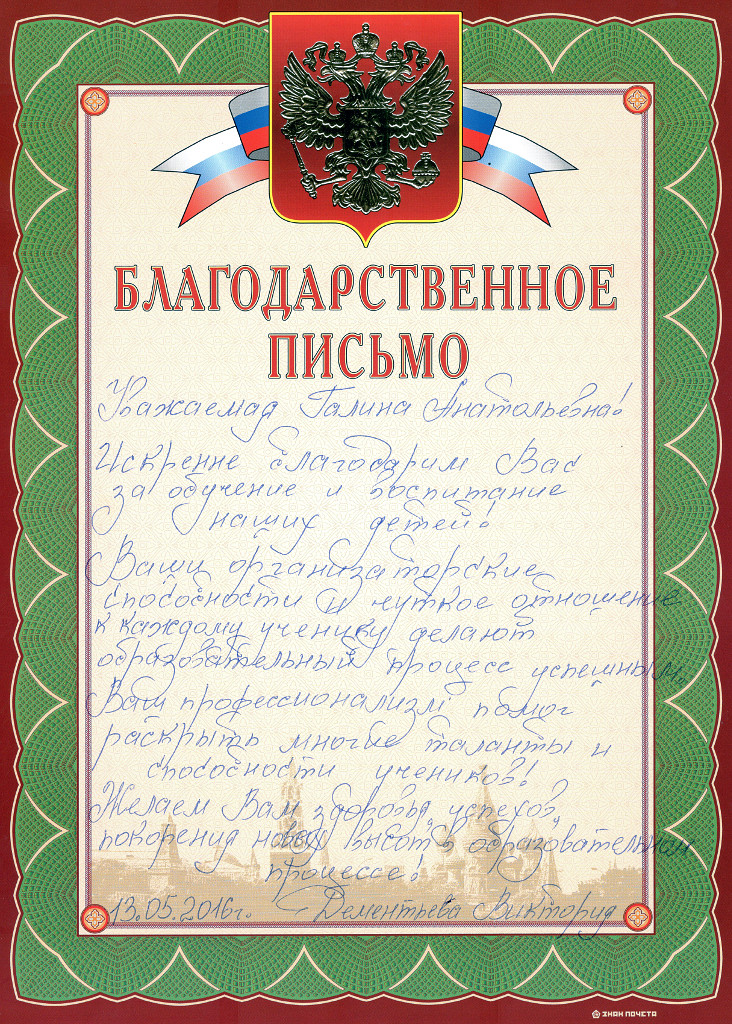 БЛАГОДАРСТВЕННОЕ
ПИСЬМО
Уважаемая Галина Анатольевна!
Искренне благодарим Вас
за обучение и воспитание
наших детей!
Ваши организаторские
способности и чуткое отношение
к каждому ученику делают
образовательный процесс успешным.
Ваш профессионализм помог
раскрыть многие таланты и
способности учеников!
Желаем Вам здоровья, успехов,
покорения новых высот в образовательном
процессе!
13.05.2016г. Дементьева Виктория
ЗНАК ПОЧЕТА